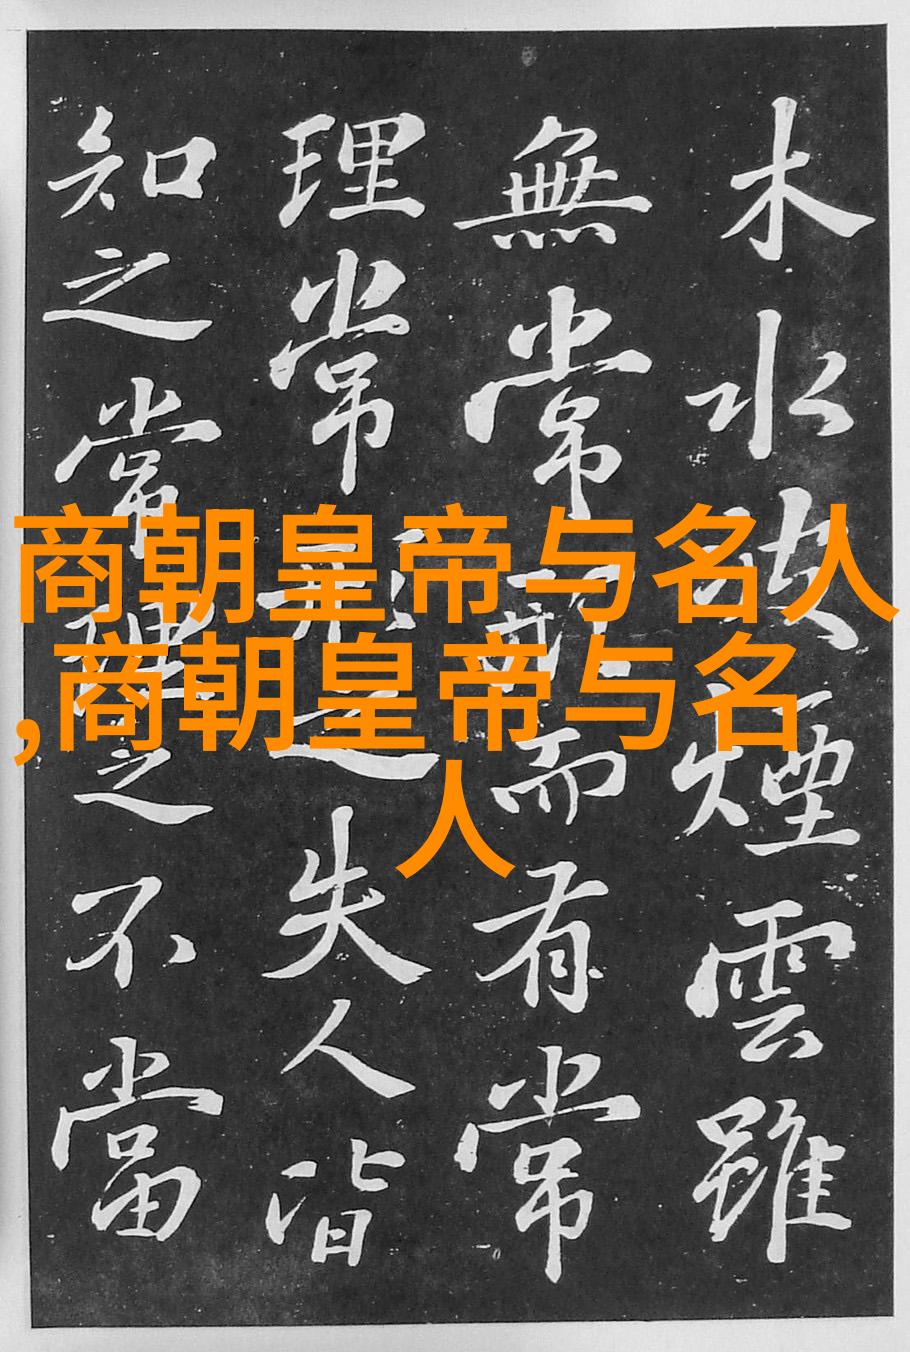 商朝皇帝与名人
,商朝皇帝与名
人
木水波煙雲雖
無常形而有常
理常形之失人皆
知之常理之不當